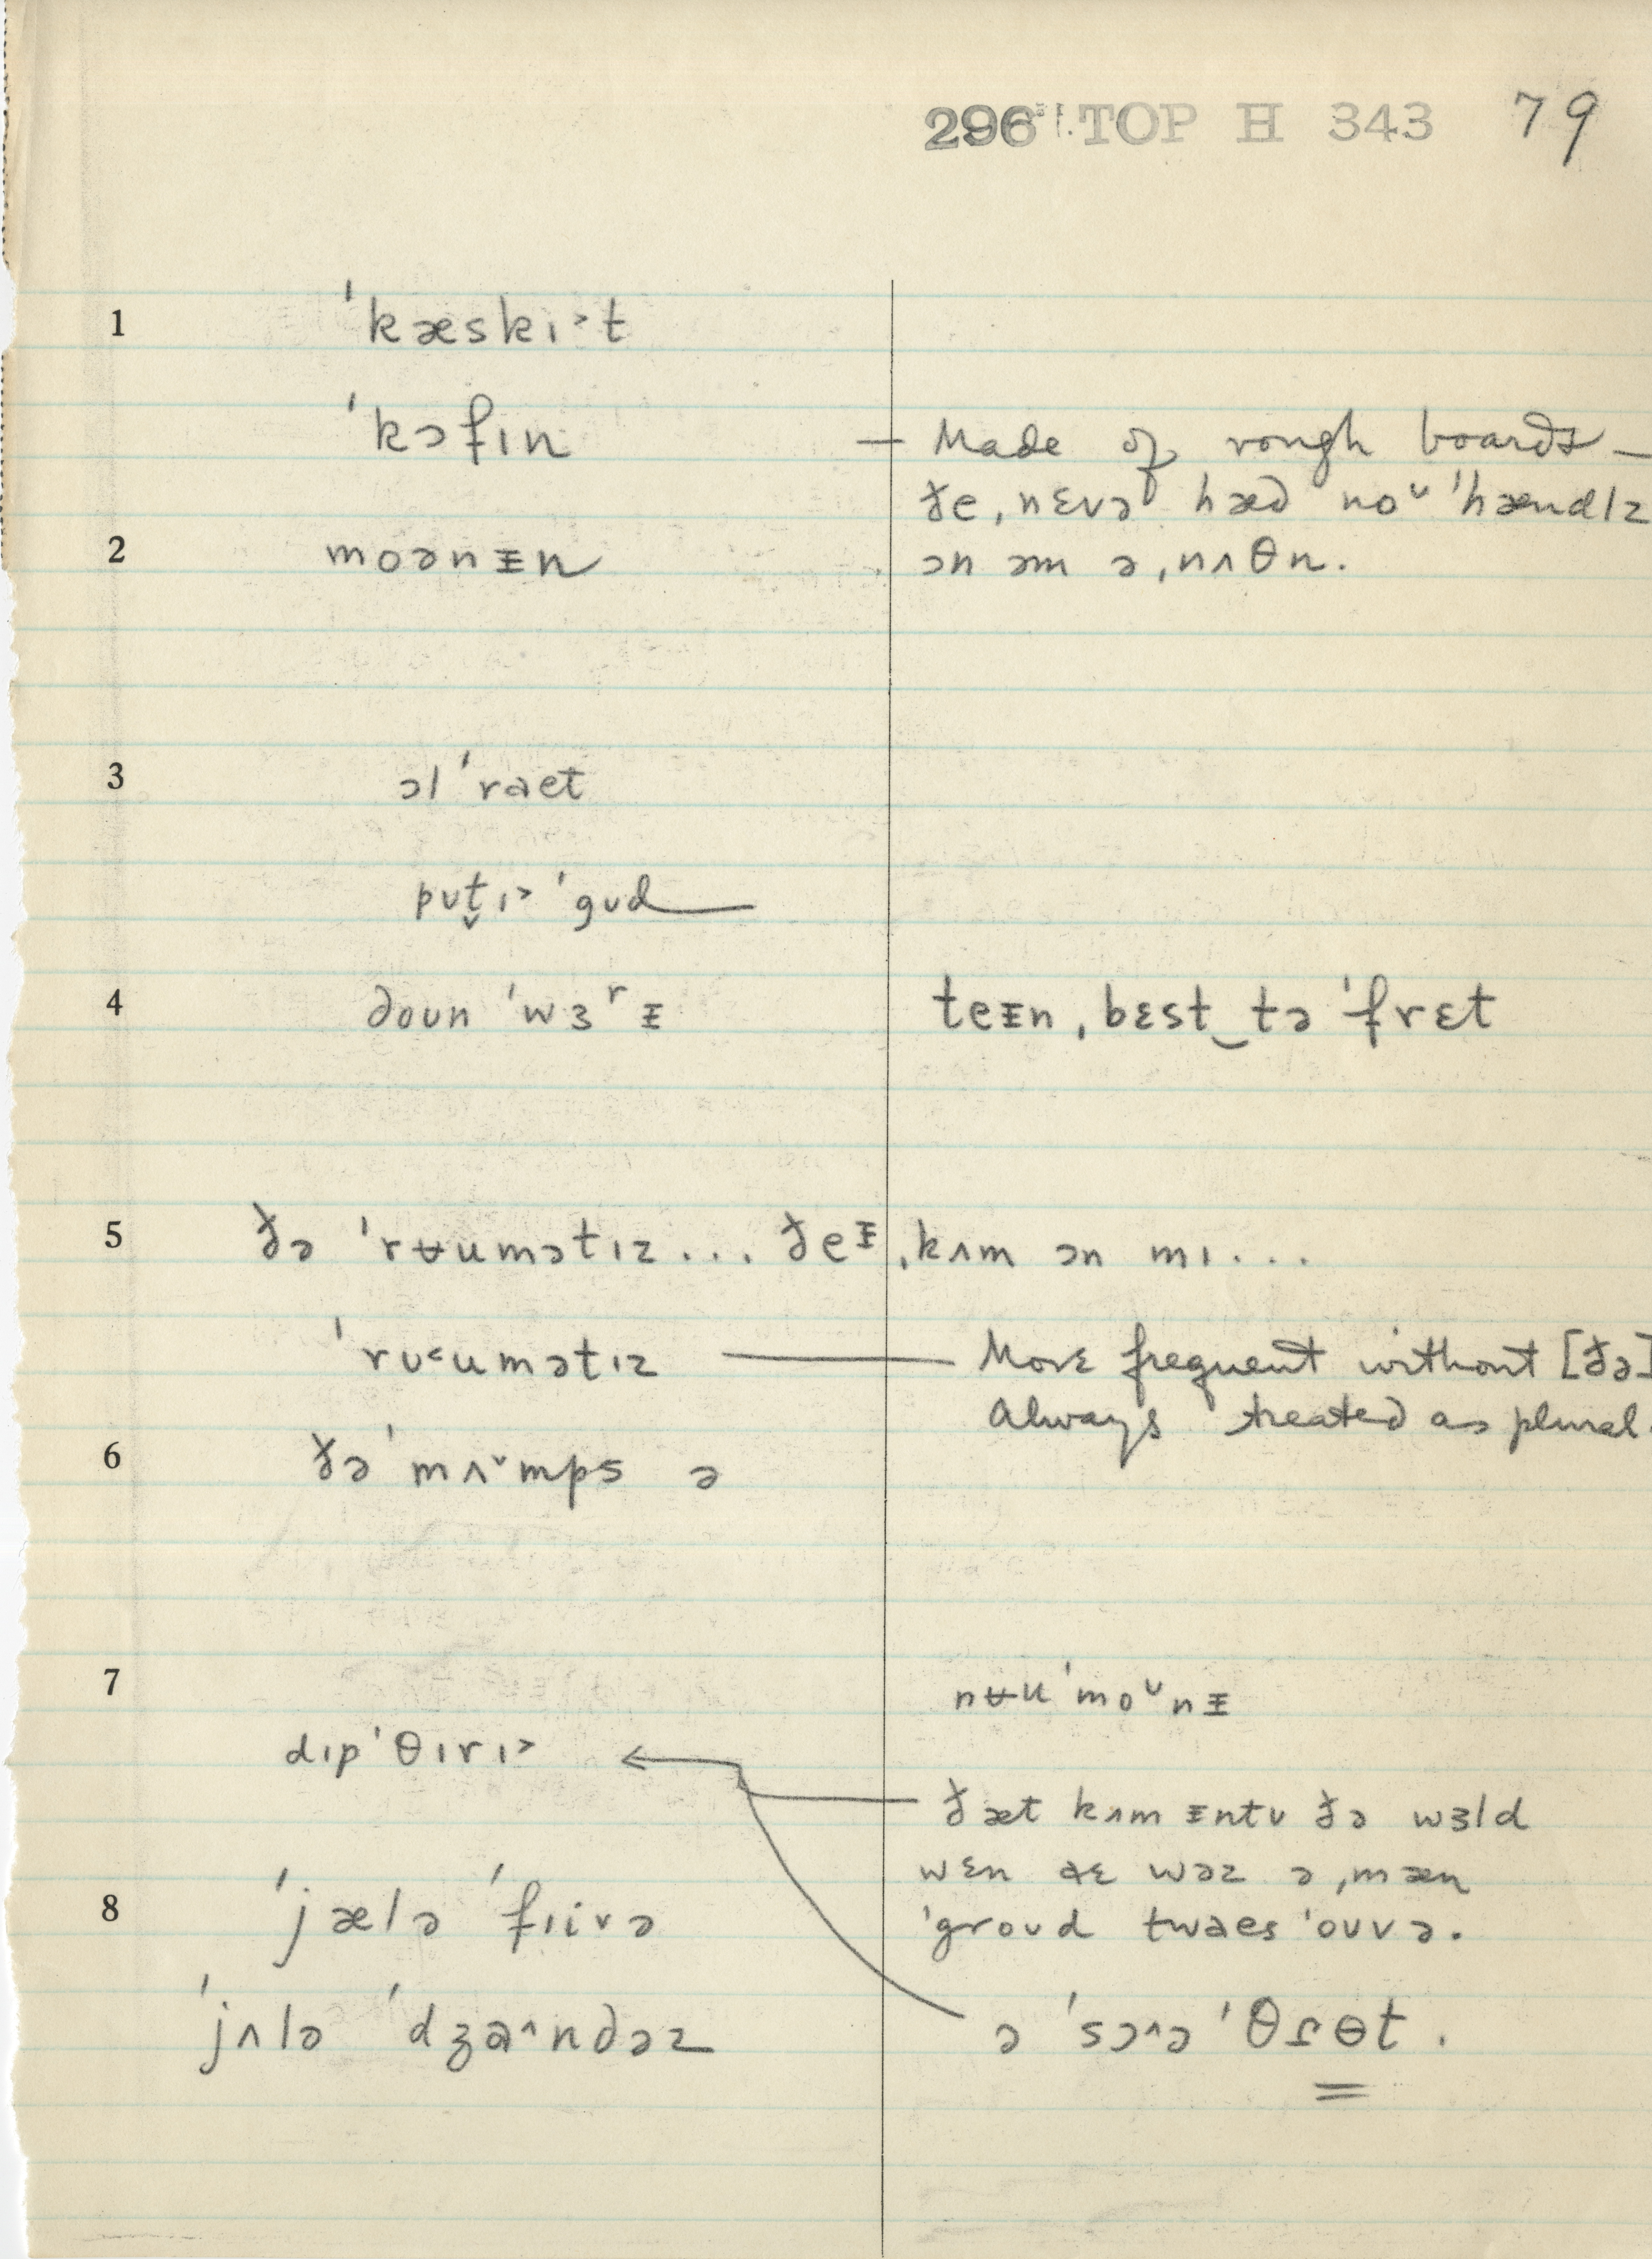 296 TOP H 343 79
1 ˈkæskɪ˃t
ˈkɔfɪn — Made of rough boards —
ðe ˌnɛvə hæd noᶷ ˈhændlz
2 moənᵻn ɔn əm ə ˌnʌθn.
3 ɔl ˈraet
pʊt̬ɪ˃ ˈgʊd
4 doʊn ˈwɜʳᵻ teᵻn ˌbɛst‿tə ˈfrɛt
5 ðə ˈrʉumətɪz... ðeᵻ ˌkʌm ɔn mɪ...
ˈrʊ˂umətɪz — More frequent without [ðə]
Always treated as plural.
6 ðə ˈmʌ˅mps ə
7 nʉuˈmoᶷnᵻ
dɪpˈθɪrɪ˃
ðæt kʌm ᵻntʊ ðə wɜld
wɛn aɛ wəz ə ˌmæn
8 ˈjælə ˈfɪivə ˈgroʊd twaes ˈoʊvə.
ˈjʌlə ˈdʒa˄ndəz ə ˈsɔ˄ə ˈθɾɵt.